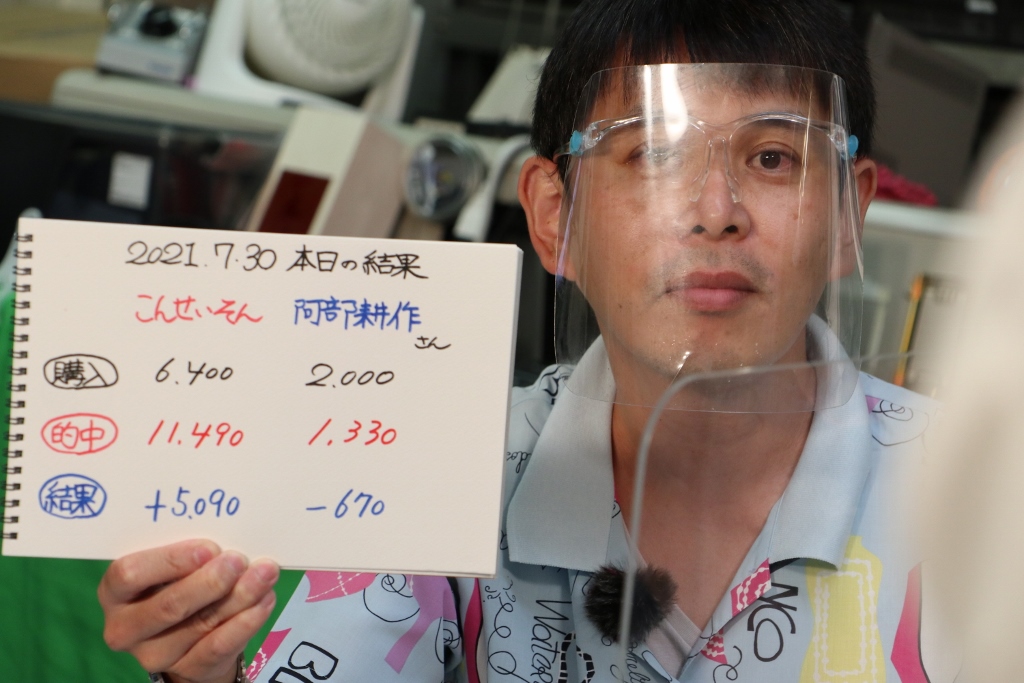 2021.7.30 本日の結果
こんせいそん 阿部耕作
さん
購入 6.400 2.000
的中 11.490 1.330
結果 +5.090 -670